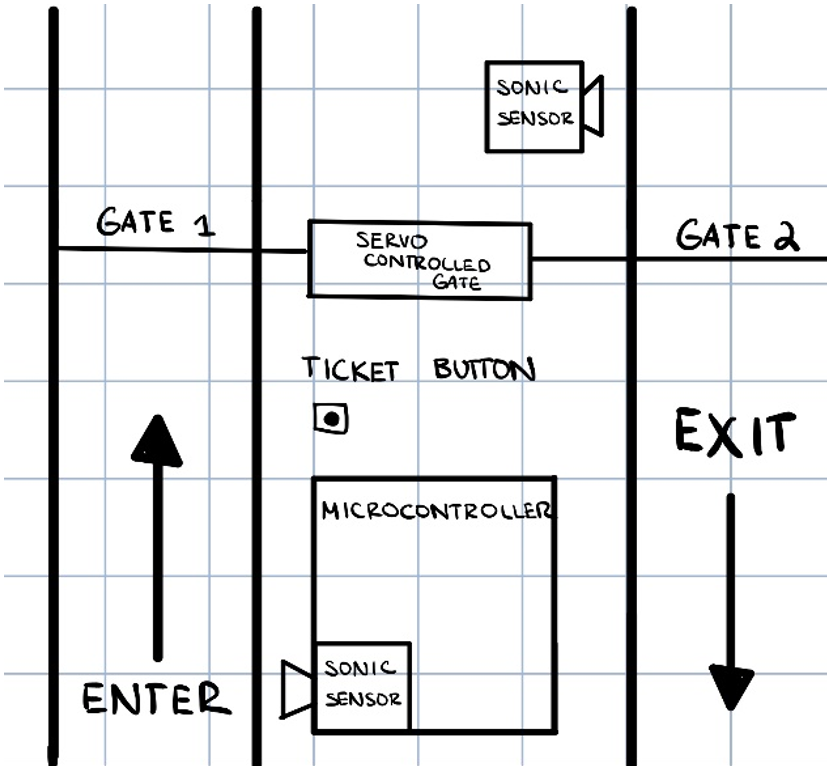 SONIC
SENSOR
GATE 1
SERVO
CONTROLLED
GATE
GATE 2
TICKET BUTTON
EXIT
MICROCONTROLLER
SONIC
SENSOR
ENTER